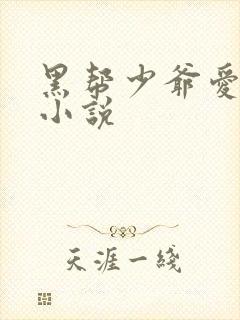 黑帮少爷愛
小說
天涯一綫